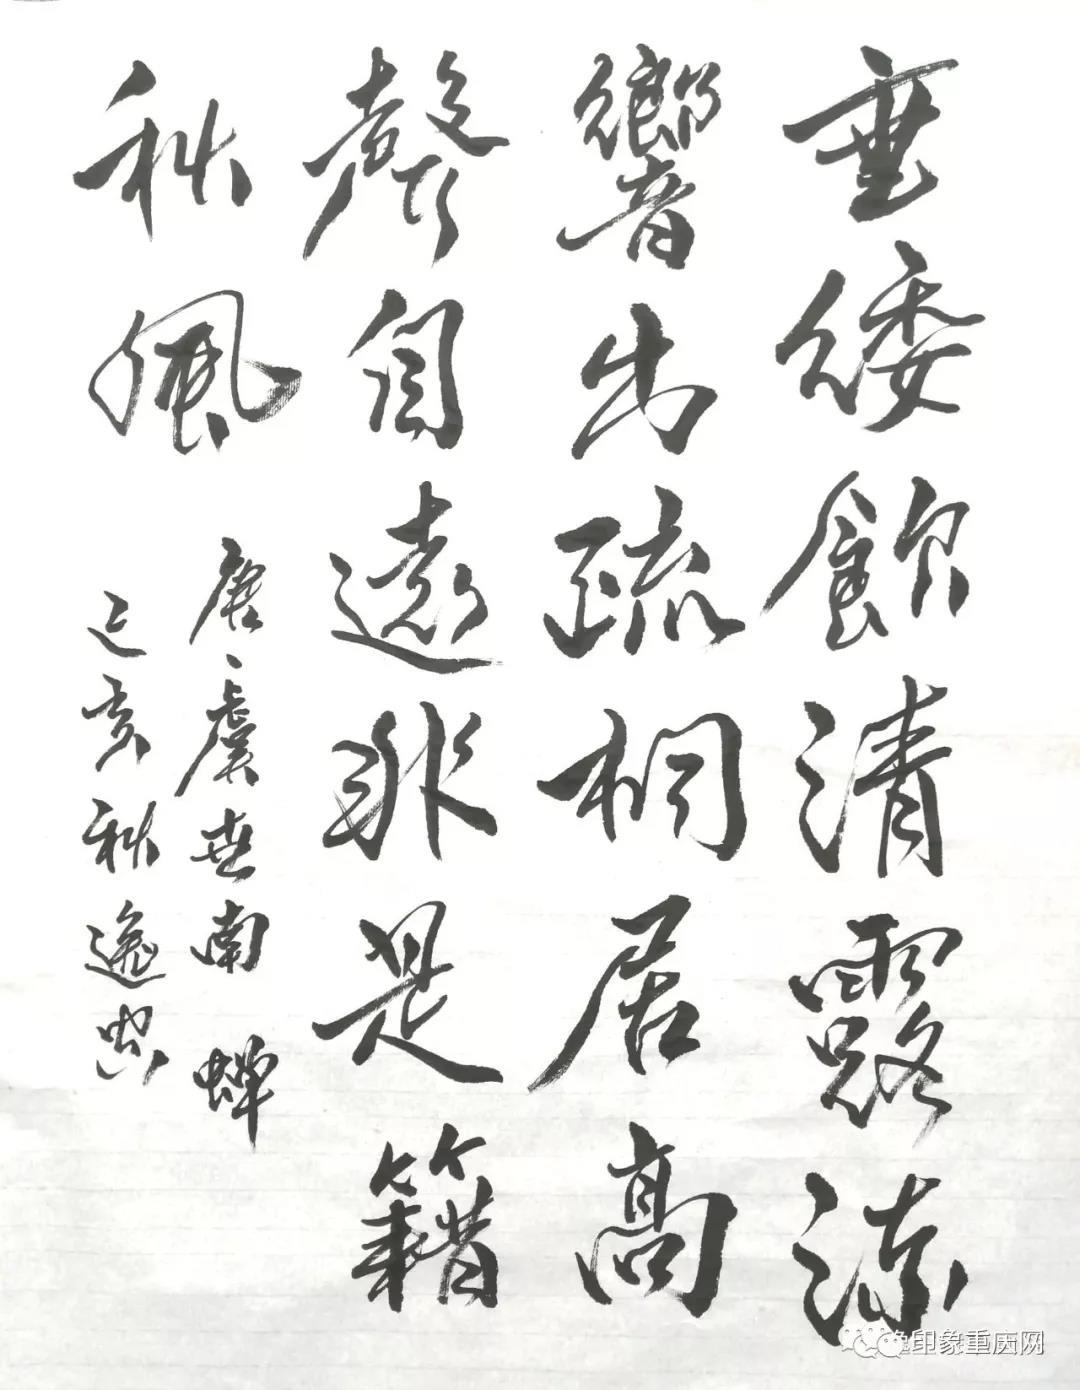 垂緌飲清露流
響出疏桐居高
聲自遠非是籍
秋風
唐虞世南蝉
己亥秋逸忠
印象重庆网